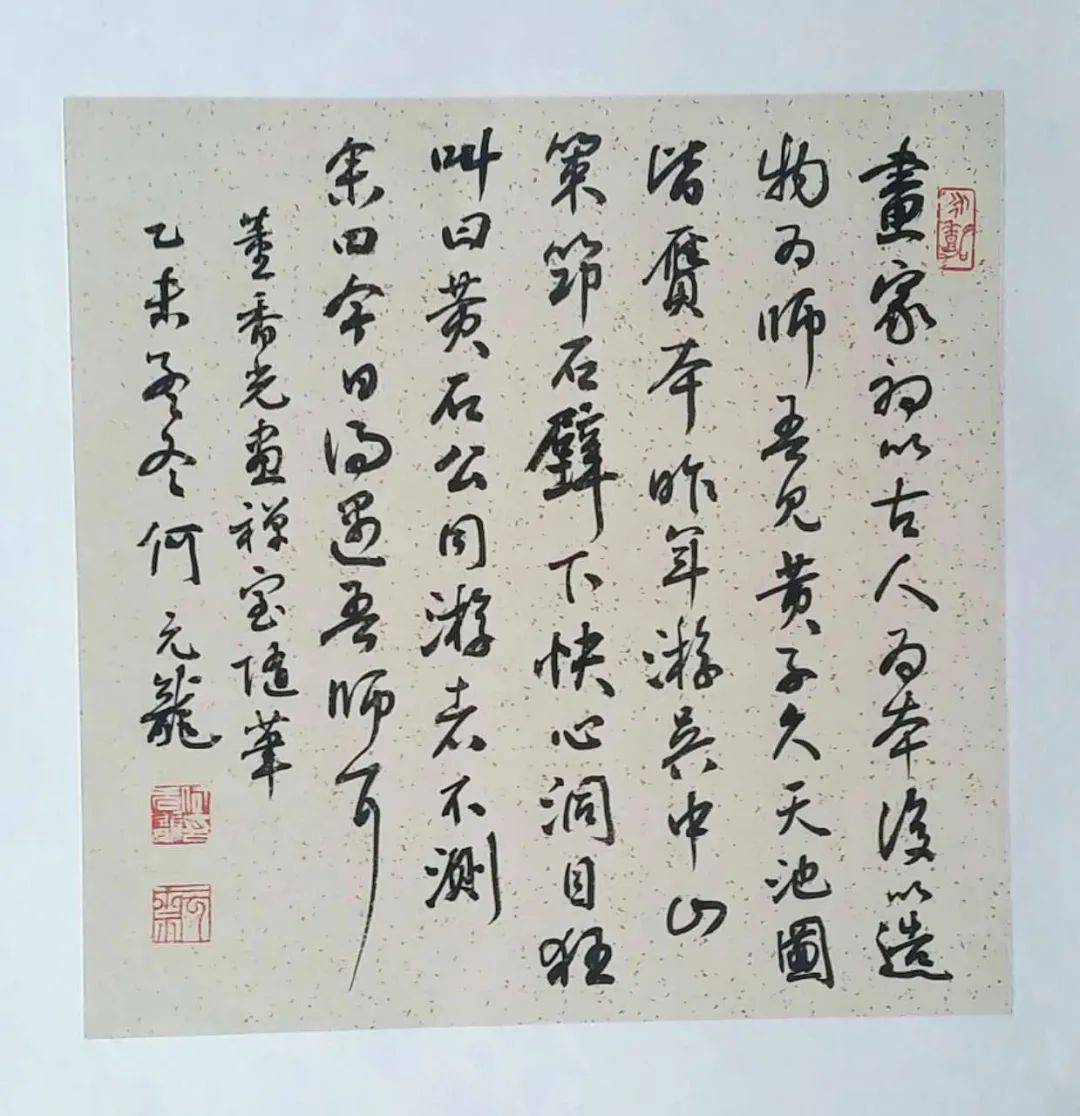 畫家初以古人為本後以造
物為師吾見黄子久天池圖
皆贋本昨年游吴中山
策筇石壁下快心洞目狂
叫曰黄石公同游者不測
余曰今日得遇吾師耳
董香光畫禅室隨筆
乙未孟冬何元龍